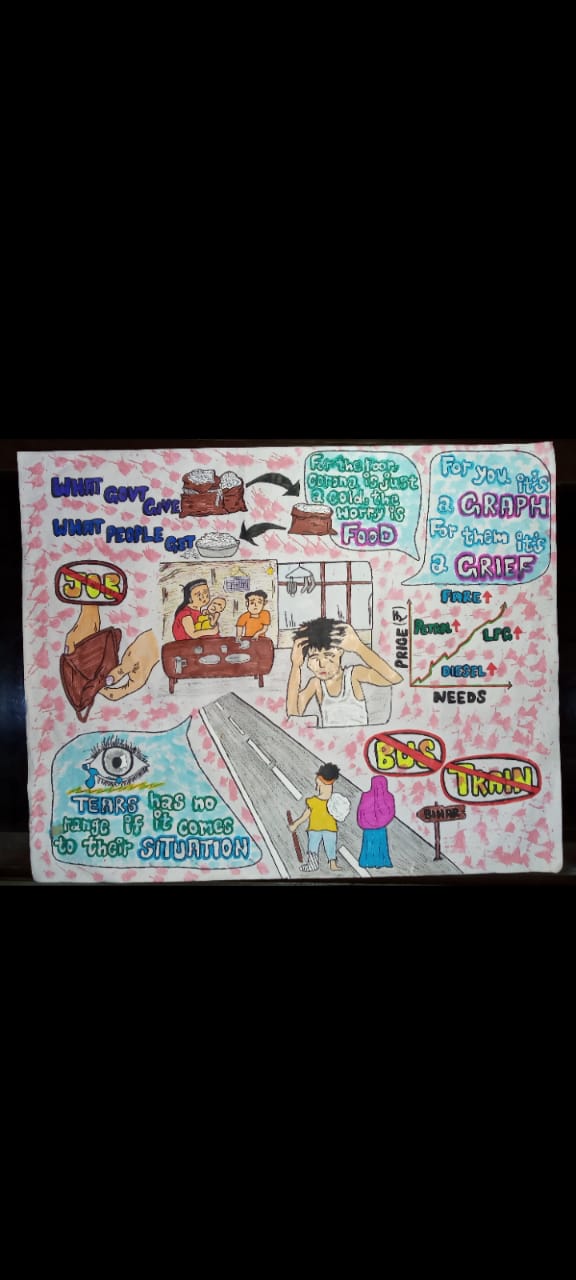 WHAT GOVT GIVE
WHAT PEOPLE GET
For the poor
corona is just
a cold, the
worry is
FOOD
For you, it's
a GRAPH
For them it's
a GRIEF
JOB
FARE↑
PETROL↑
LPG↑
DIESEL↑
PRICE (₹)
NEEDS
BUS
TRAIN
BIHAR
TEARS has no
range if it comes
to their SITUATION